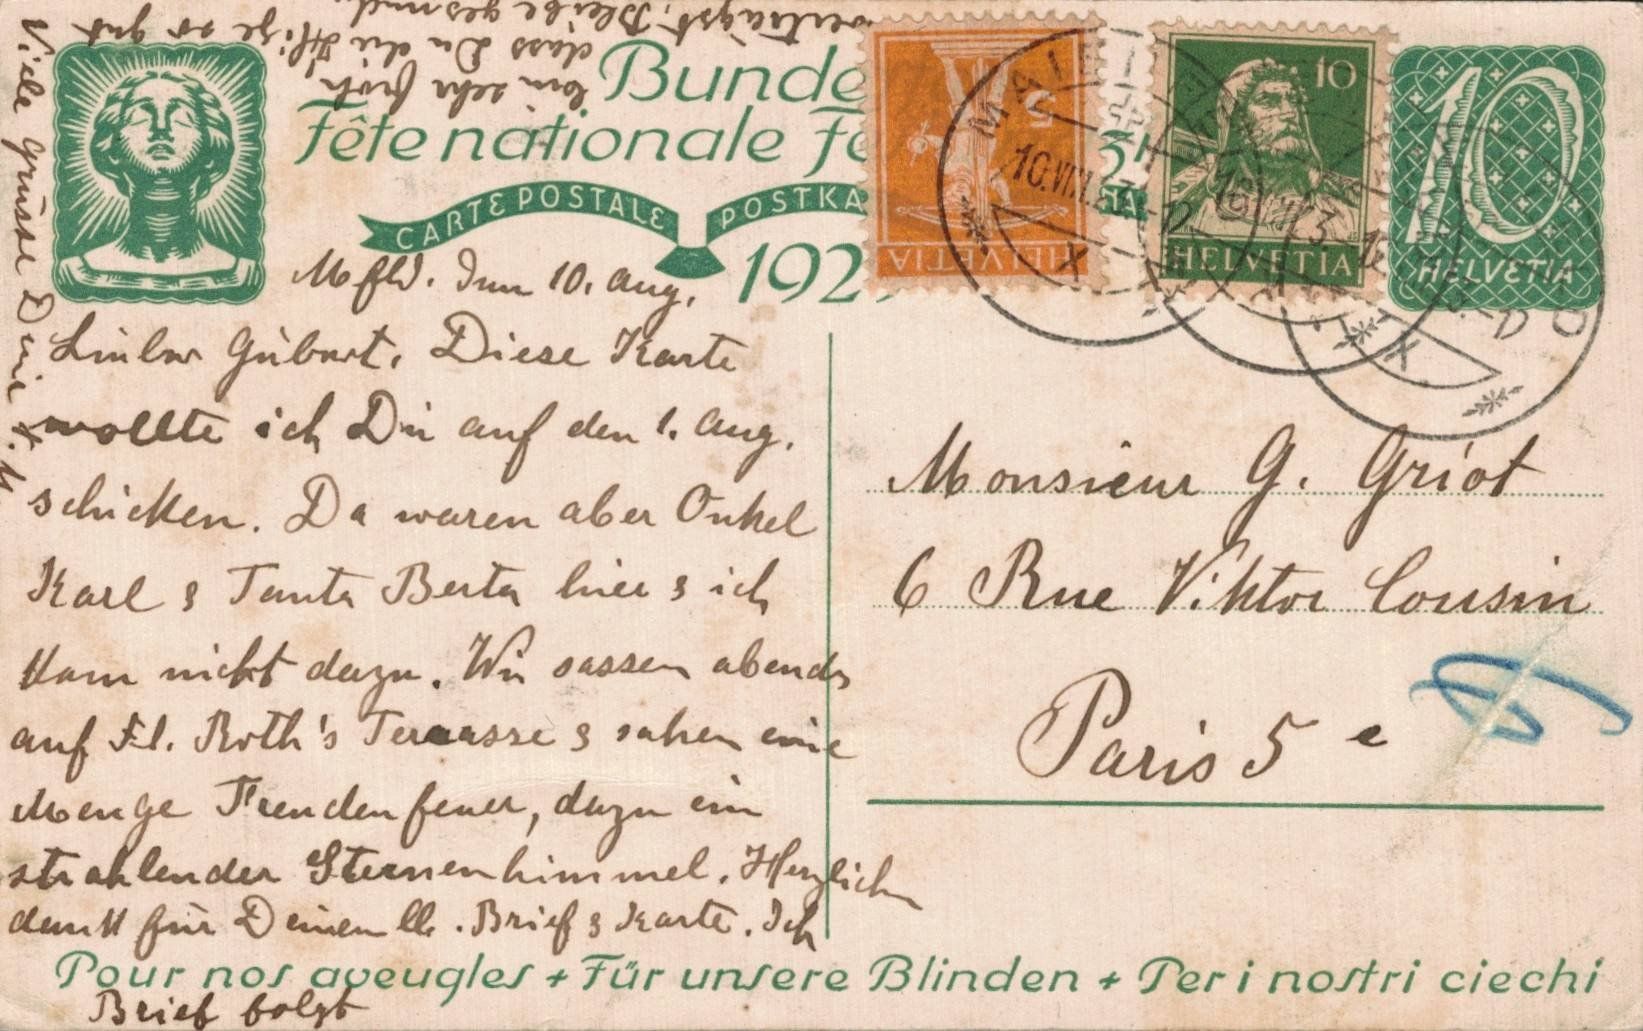 Bunde
Fête nationale Fe
CARTE POSTALE POSTKA
192
5
HELVETIA
10
HELVETIA
10
HELVETIA
10.VIII.23.-12
Mfld. den 10. Aug.
Lieber Gübert. Diese Karte
wollte ich Dir auf den 1. Aug.
schicken. Da waren aber Onkel
Karl & Tante Berta hier & ich
kam nicht dazu. Wir sassen abends
auf Frl. Roth's Terrasse & sahen eine
Menge Freudenfeuer, dazu ein
strahlender Sternenhimmel. Herzlichen
dank für Deinen lb. Brief & Karte. Ich
bin sehr froh,
dass Du die Hitze so gut
verträgst. Bleibe gesund.
Viele Grüsse Deine
Brief folgt
Monsieur G. Griot
6 Rue Viktor Cousin
Paris 5e
Pour nos aveugles + Für unsere Blinden + Per i nostri ciechi